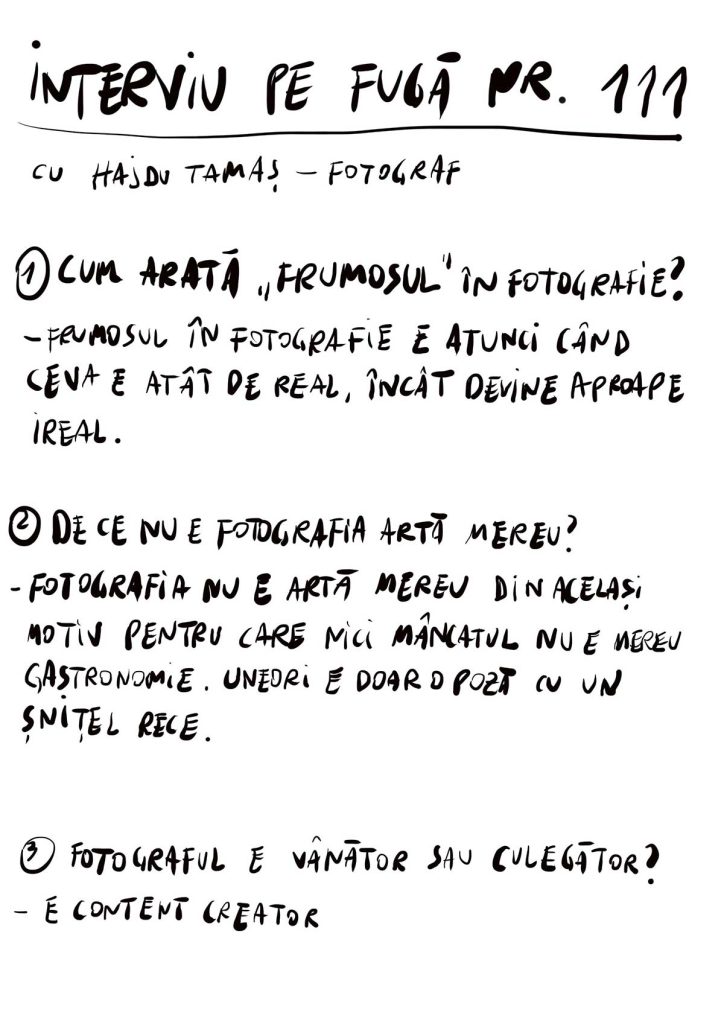 INTERVIU PE FUGĂ NR. 111
CU HAJDU TAMAȘ – FOTOGRAF
① CUM ARATĂ „FRUMOSUL" ÎN FOTOGRAFIE?
– FRUMOSUL ÎN FOTOGRAFIE E ATUNCI CÂND
CEVA E ATÂT DE REAL, ÎNCÂT DEVINE APROAPE
IREAL.
② DE CE NU E FOTOGRAFIA ARTĂ MEREU?
- FOTOGRAFIA NU E ARTĂ MEREU DIN ACELAȘI
MOTIV PENTRU CARE NICI MÂNCATUL NU E MEREU
GASTRONOMIE. UNEORI E DOAR O POZĂ CU UN
ȘNIȚEL RECE.
③ FOTOGRAFUL E VÂNĂTOR SAU CULEGĂTOR?
– E CONTENT CREATOR